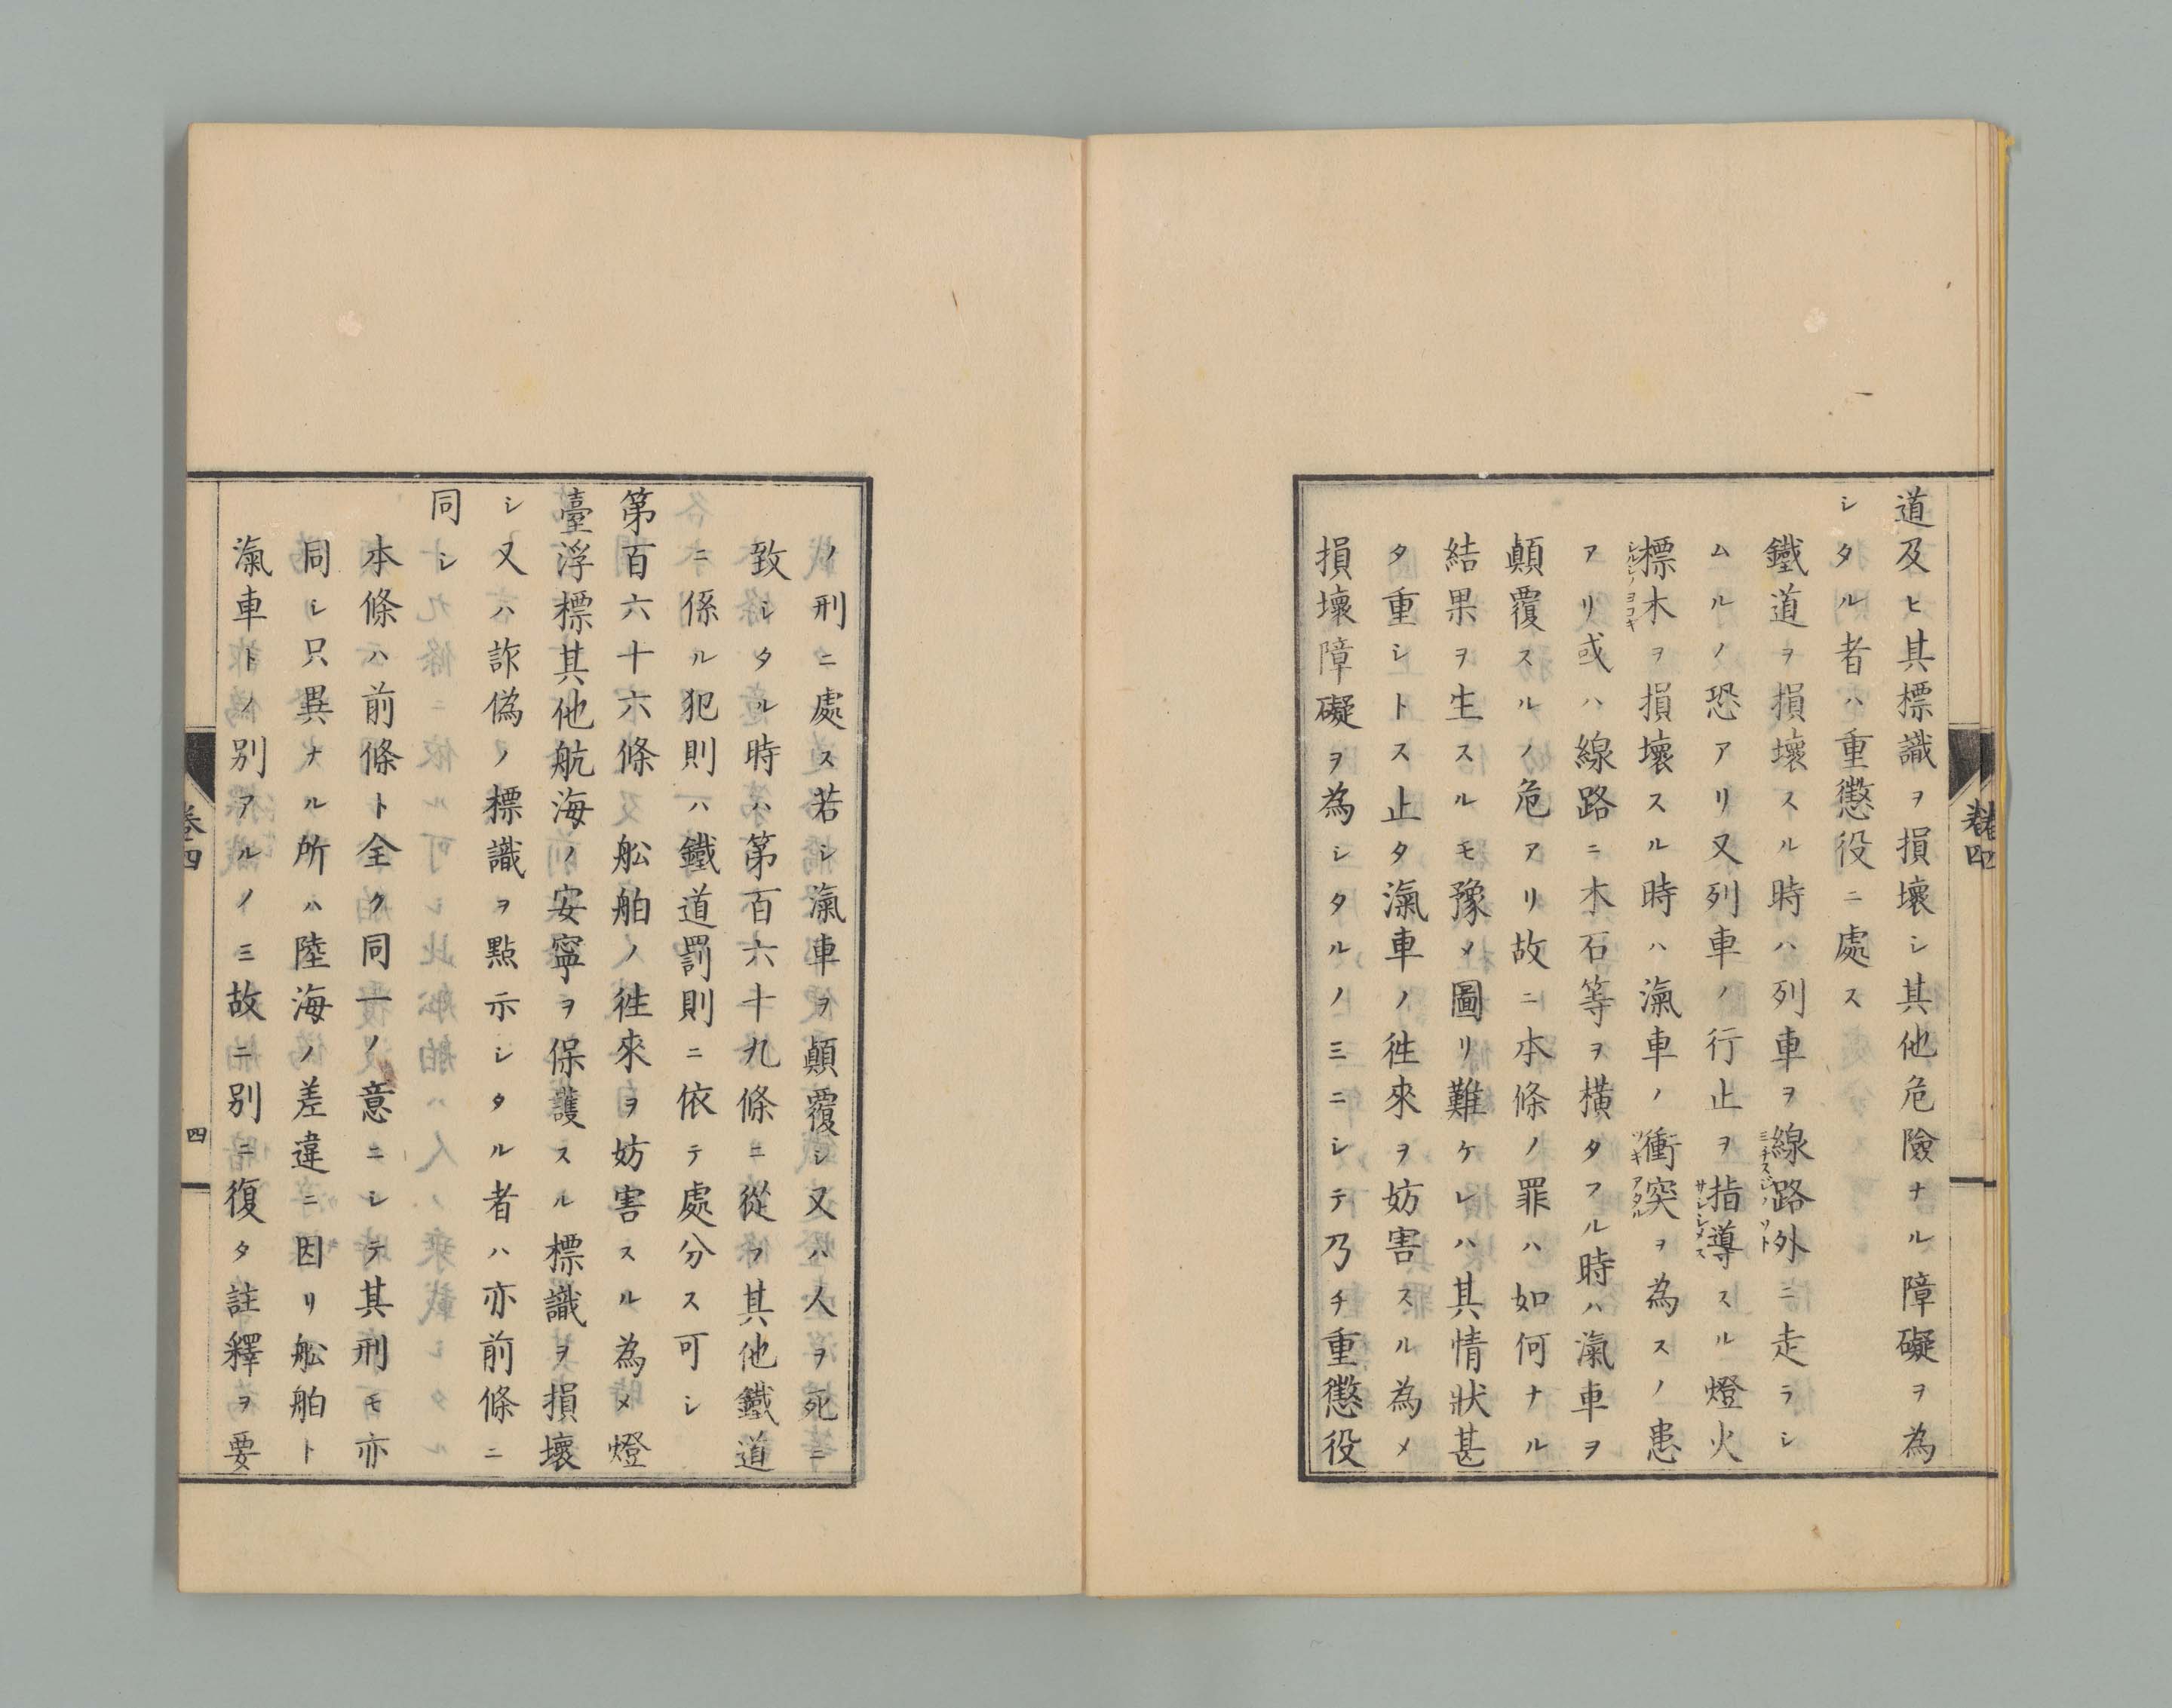 道及ヒ其標識ヲ損壞シ其他危險ナル障礙ヲ為
シタル者ハ重懲役ニ處ス
鐵道ヲ損壞スル時ハ列車ヲ線路外ニ走ラシ
ミチスジノソト
ムルノ恐アリ又列車ノ行止ヲ指導スル燈火
サシシメス
標木ヲ損壞スル時ハ滊車ノ衝突ヲ為スノ患
シルシノヨコキ
ツキアタル
アリ或ハ線路ニ木石等ヲ横タフル時ハ滊車ヲ
顛覆スルノ危アリ故ニ本條ノ罪ハ如何ナル
結果ヲ生スルモ豫メ圖リ難ケレハ其情狀甚
タ重シトス止タ滊車ノ徃來ヲ妨害スル為メ
損壞障礙ヲ為シタルノミニシテ乃チ重懲役
卷四
ノ刑ニ處ス若シ滊車ヲ顛覆シ又ハ人ヲ死ニ
致シタル時ハ第百六十九條ニ從フ其他鐵道
ニ係ル犯則ハ鐵道罰則ニ依テ處分ス可シ
第百六十六條 舩舶ノ徃來ヲ妨害スル為メ燈
臺浮標其他航海ノ安寧ヲ保護スル標識ヲ損壞
シ又ハ詐偽ノ標識ヲ點示シタル者ハ亦前條ニ
同シ
本條ハ前條ト全ク同一ノ意ニシテ其刑モ亦
同シ只異ナル所ハ陸海ノ差違ニ因リ舩舶ト
滊車トノ別アルノミ故ニ別ニ復タ註釋ヲ要
卷四
四